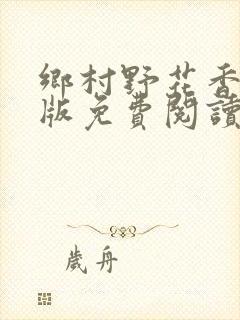 鄉村野花香
版免費閱讀
歲舟